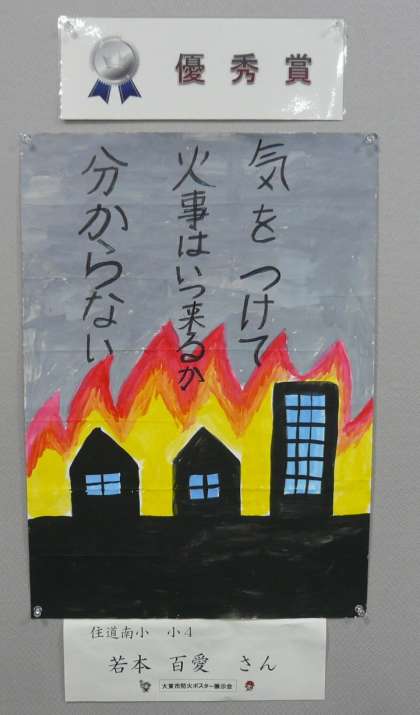 優秀賞
気をつけて
火事はいつ来るか
分からない
住道南小 小4
若本 百愛 さん
大東市防火ポスター展示会